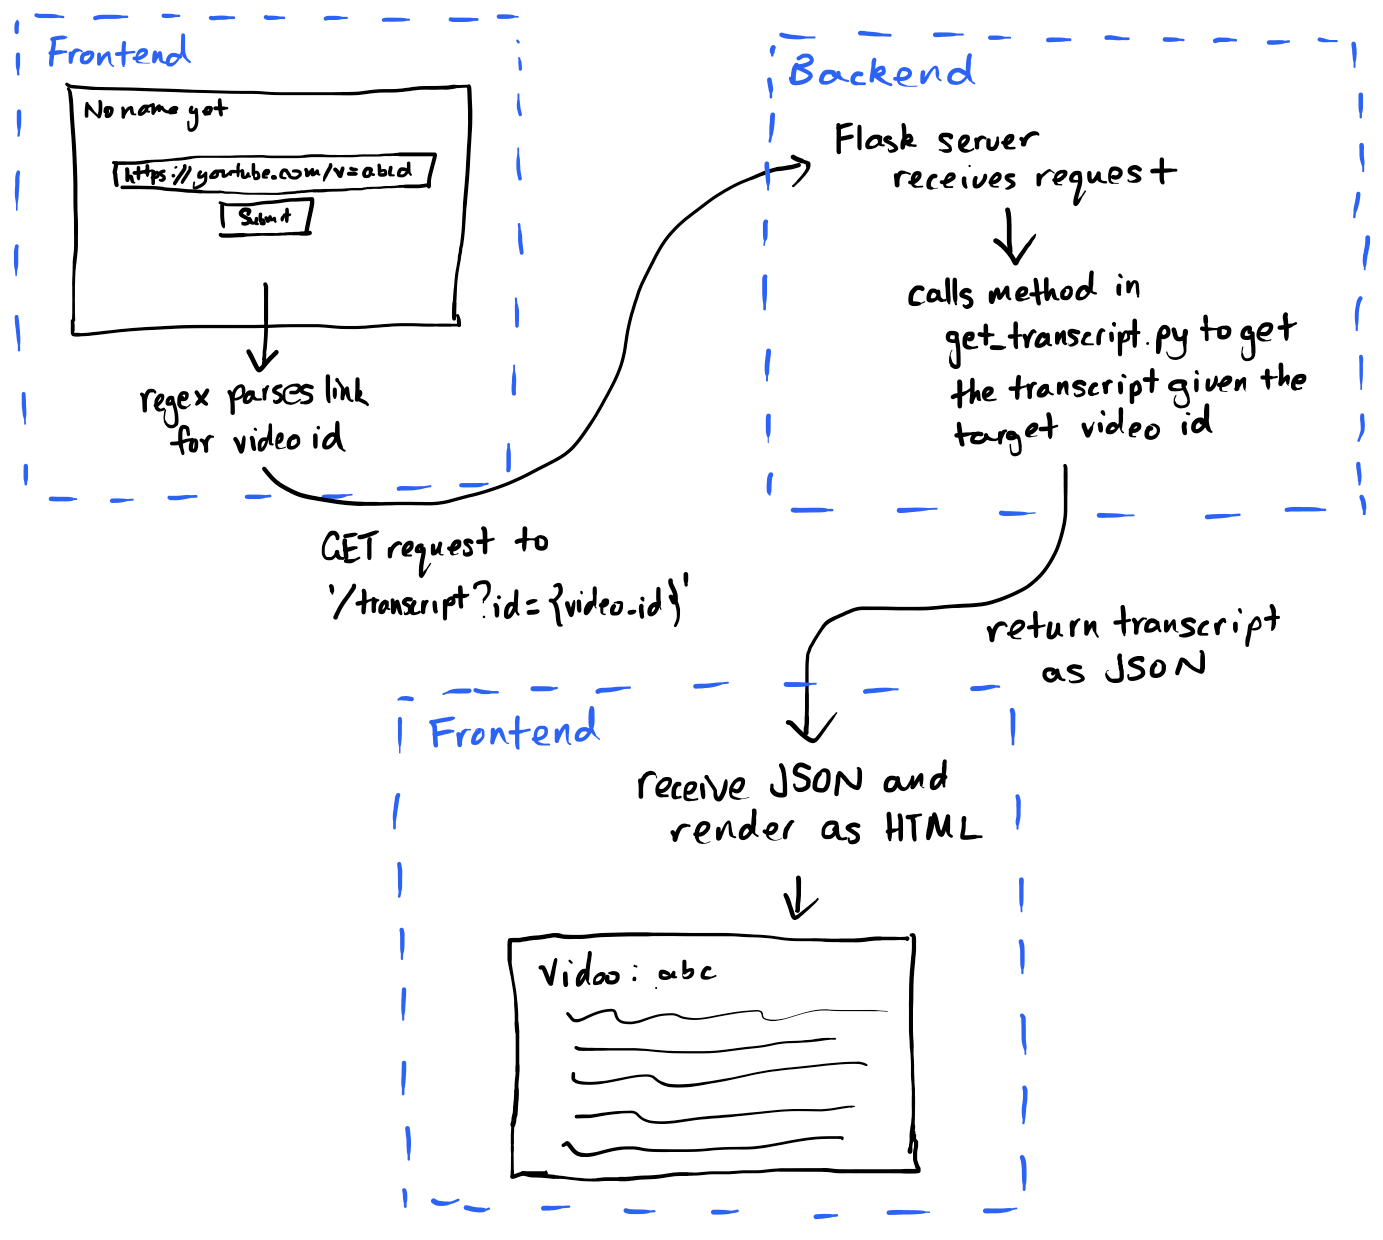 Frontend
No name yet
https://youtube.com/v=abcd
Submit
regex parses link
for video id
GET request to
'/transcript?id={video_id}'
Backend
Flask server
receives request
calls method in
get_transcript.py to get
the transcript given the
target video id
return transcript
as JSON
Frontend
receive JSON and
render as HTML
Video: abc